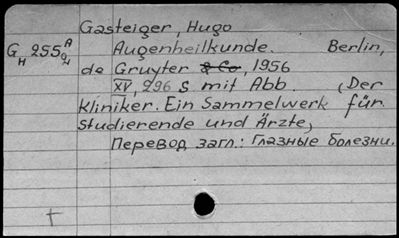 Gasteiger, Hugo
GH 255 A
Augenheilkunde. Berlin,
de Gruyter & Co, 1956
XV, 296 S mit Abb. (Der
Kliniker. Ein Sammelwerk für
Studierende und Ärzte)
Перевод загл.: Глазные болезни.